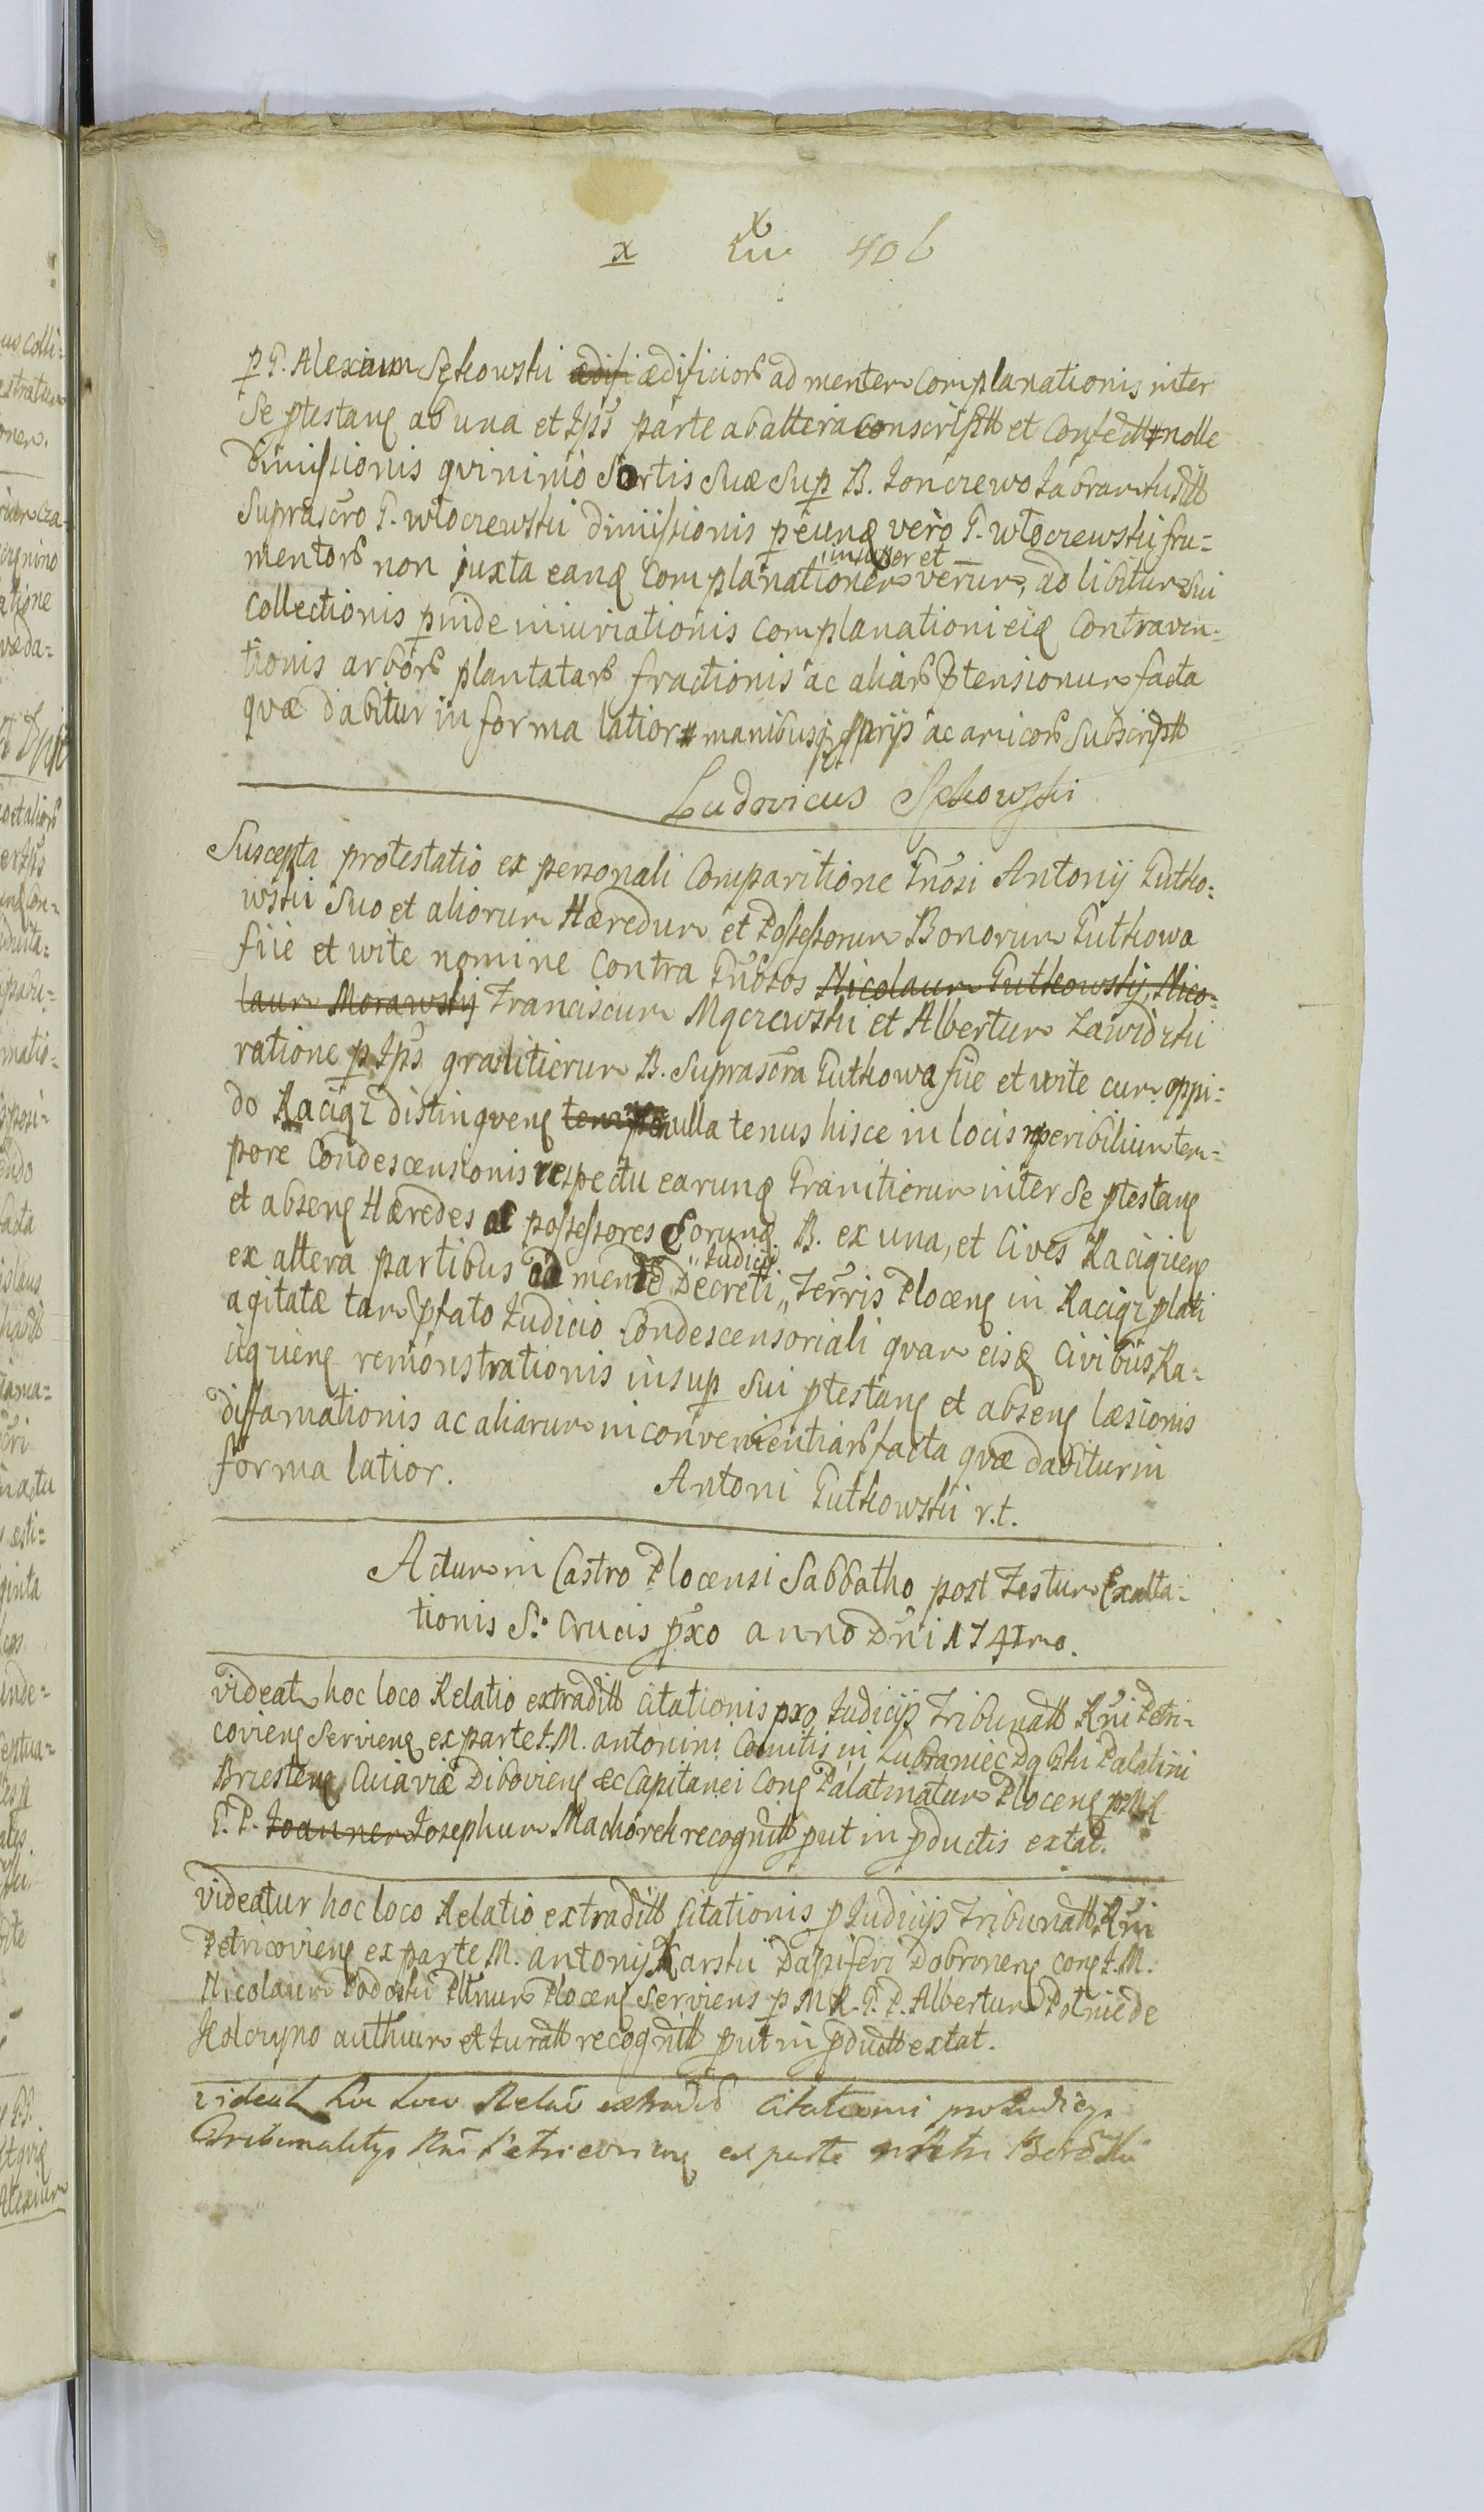 x 406
p G. Alexium Sękowski ædifi ædificior ad mentem Complanationis inter
Se ptestanę ab una et Ips parte ab altera conscriptt et Confectt nolle
dimissionis qvinimo Sortis Suæ Sup B. Jonczewo
Suprascro G. Włoczewski dimissionis peundę vero G. Włoczewski fru=
mentor non juxta eanę Complanationem insuper et verum, ad libitum Sui
Collectionis pinde iniuriationis Complanationi eię Contraven=
tionis arbor plantatar fractionis ac aliar ptensionum facta
qvæ dabitur in forma latior manibus pprijs ac amicor Subscriptt
Ludovicus Sękowski
Suscepta protestatio ex personali Comparitione Gnosi Antonij Gutko=
wski Suo et aliorum Hæredum et Possessorum Bonorum Gutkowa
fiie et wite nomine Contra Gnosos Nicolaum Gutkowskij, Nico=
laum Morawskij Franciscum Mączewski et Albertum Zawidzki
ratione p Ips granitierum B. Suprascra Gutkowa fiie et wite cum oppi=
do Raciąz distingvenę nulla tenus hisce in locis reperibilium tem=
pore Condescensionis respectu earunę Granitierum inter Se ptestanę
et absenę Hæredes ac possessores Eorunę B. ex una, et Cives Raciąienę
ex altera partibus ad mentē Decreti „Judicij „Terris Plocenę in Raciąz plati
agitatæ tam pfato Judicio Condescensoriali qvam eisę Civibus Ra=
ciąienę remonstrationis insup Sui ptestanę et absenę læsionis
diffamationis ac aliarum inconvenientiar facta qvæ dabitur in
forma latior.
Antoni Gutkowski r.t.
Actum in Castro Plocensi Sabbatho post Festum Exalta=
tionis S. Crucis pxo anno Dni 1741mo.
videatr hoc loco Relatio extraditt Citationis pro Judicijs Tribunatt Rni Petri=
covienę Servienę ex parte I.M. antonini Comitis in Lubraniec Dąbski Palatini
Brzestenę Cuiaviæ Dibovienę &c Capitanei Conę Palatinatum Plocenę p MR
G.P. Joannem Josephum Machorek recognitt put in pductis extat.
videatur hoc loco Relatio extraditt Citationis p Judicijs Tribunatt Rni
Petricovienę ex parte M. antonij Karski Dapiferi Dobronenę Conę I.M.
Nicolaum Podoski Pltinum Plocenę Serviens p MR. G.P. Albertum Potnie de
Holczyno authum et Juratt recognitt put in pductt extat.
videatr hoc loco Relao extradit Citationis pro Judicijs
Tribunalitijs Rni Petricovienę ex parte